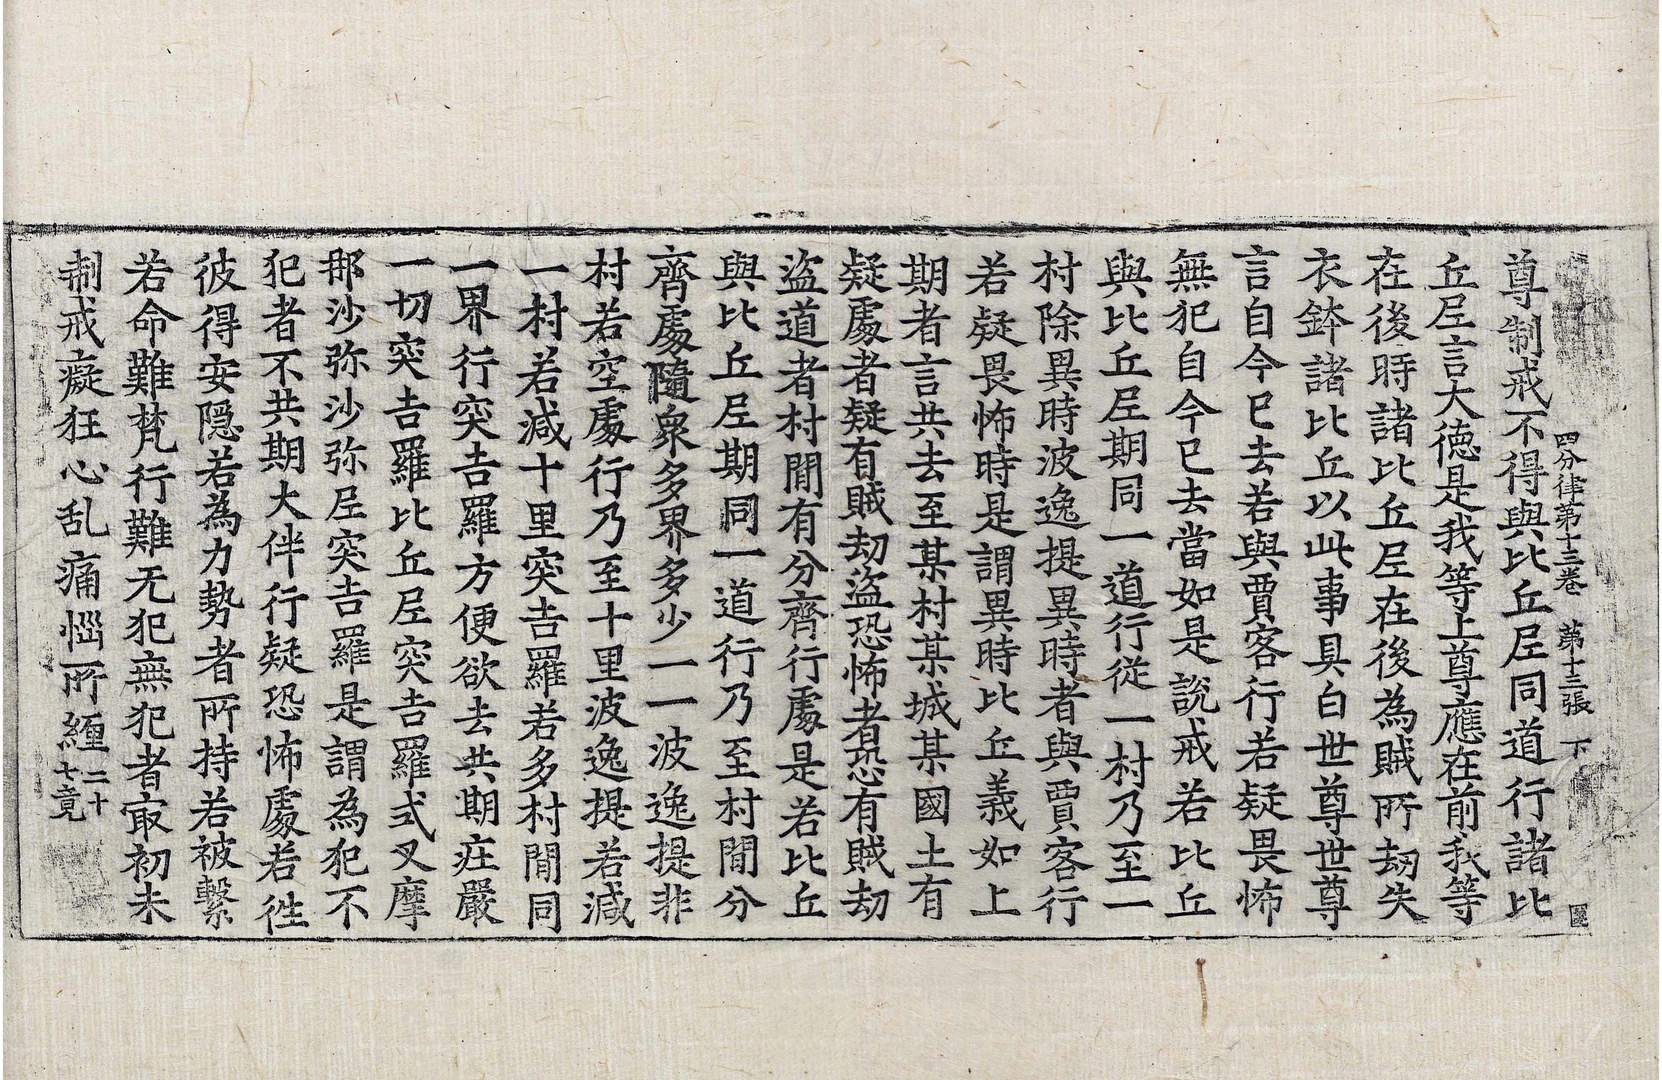 四分律第十三卷　第十三張　下
尊制戒不得與比丘尼同道行諸比
丘尼言大德是我等上尊應在前我等
在後時諸比丘尼在後為賊所劫失
衣鉢諸比丘以此事具白世尊世尊
言自今已去若與賈客行若疑畏怖
無犯自今已去當如是說戒若比丘
與比丘尼期同一道行從一村乃至一
村除異時波逸提異時者與賈客行
若疑畏怖時是謂異時比丘義如上
期者言共去至某村某城某國土有
疑處者疑有賊劫盜恐怖者恐有賊劫
盜道者村間有分齊行處是若比丘
與比丘尼期同一道行乃至村間分
齊處隨眾多界多少一一波逸提非
村若空處行乃至十里波逸提若減
一村若減十里突吉羅若多村間同
一界行突吉羅方便欲去共期庄嚴
一切突吉羅比丘尼突吉羅式叉摩
那沙弥沙弥尼突吉羅是謂為犯不
犯者不共期大伴行疑恐怖處若徃
彼得安隱若為力勢者所持若被繫
若命難梵行難无犯無犯者㝡初未
制戒癡狂心乱痛惱所纏二十七竟